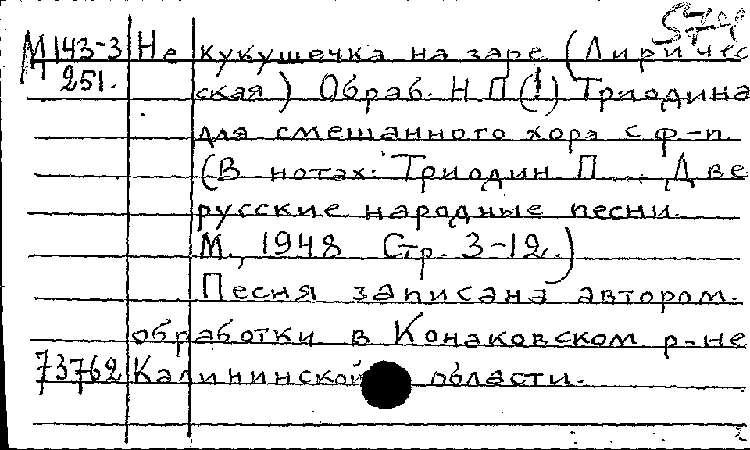 М143-3 Не кукушечка на заре (Лириче
251. ская) Обраб. Н.П(!) Триодина
для смешанного хора с ф-п.
(В нотах: Триодин П... Две
русские народные песни.
М., 1948 Стр. 3-12.)
Песня записана автором
обработки в Конаковском р-не
73762 Калининской области.